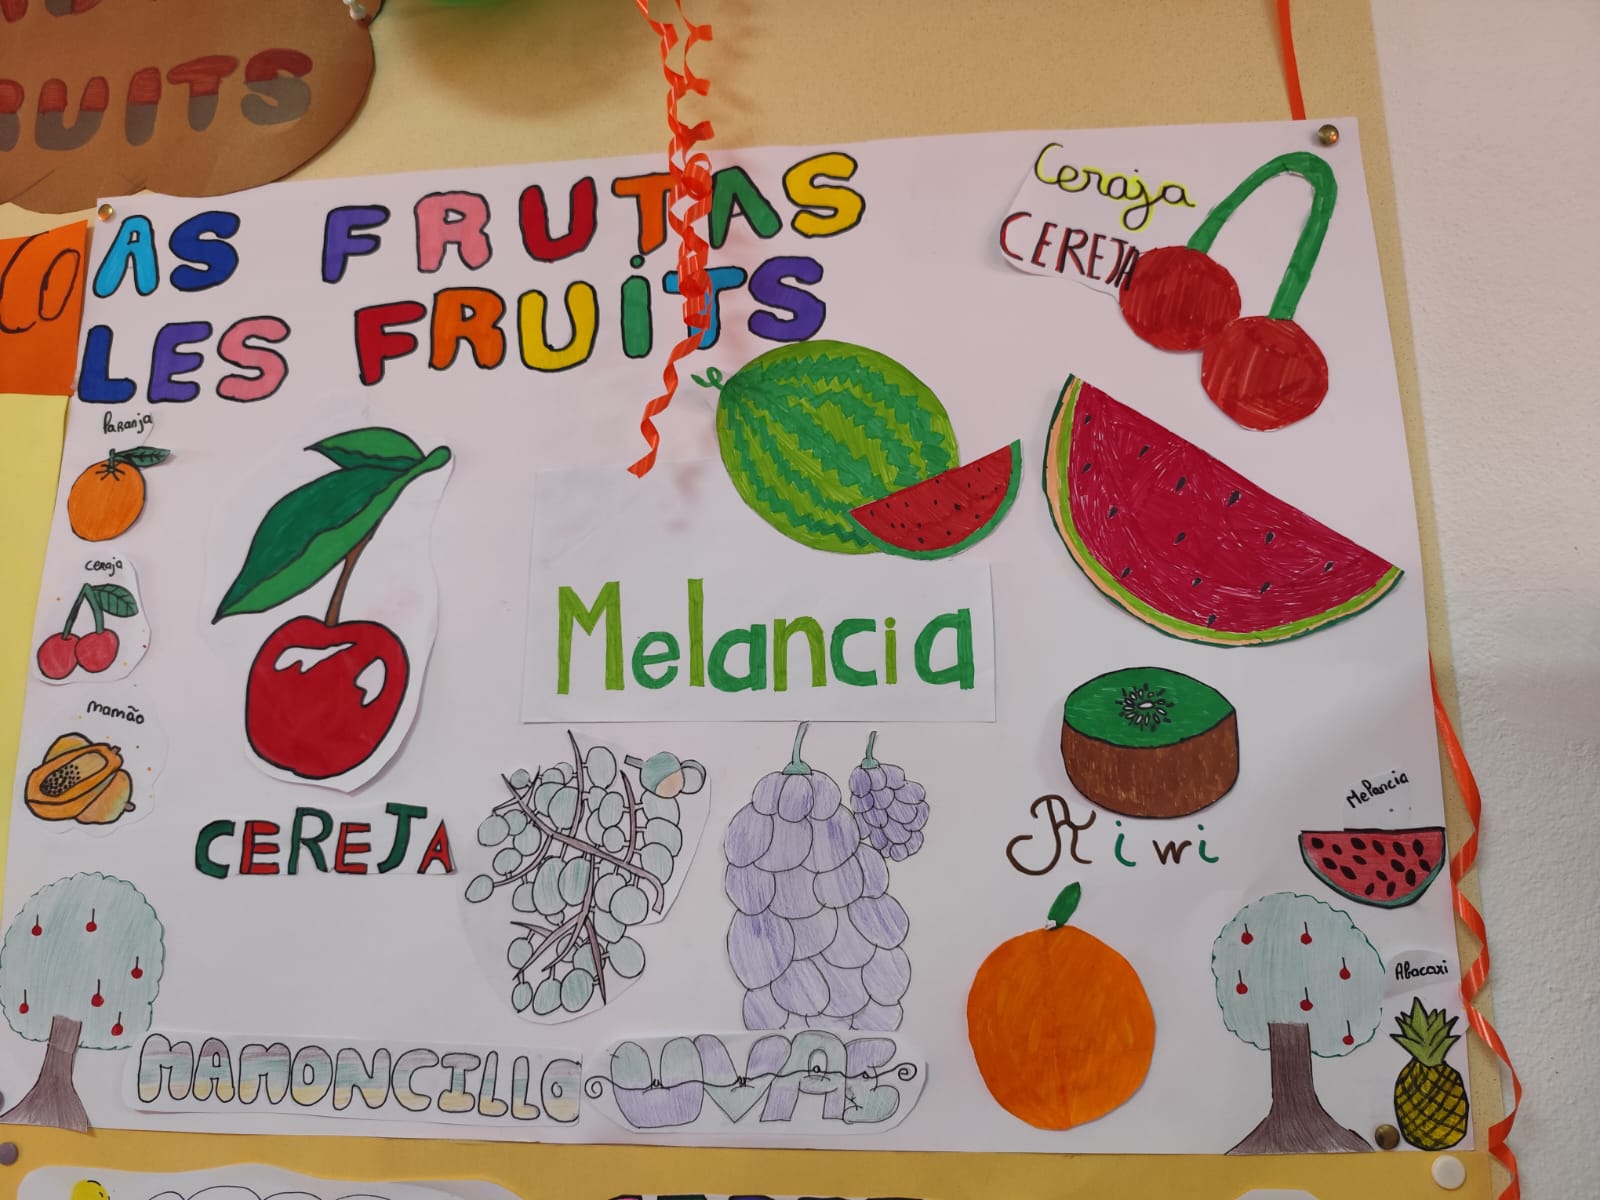 RUITS
CO
AS FRUTAS
LES FRUiTS
Ceraja
CEREJA
Paranja
Ceraja
Mamão
Melancia
CEREJA
Kiwi
Melancia
Abacaxi
MAMONCILLO
UVAS